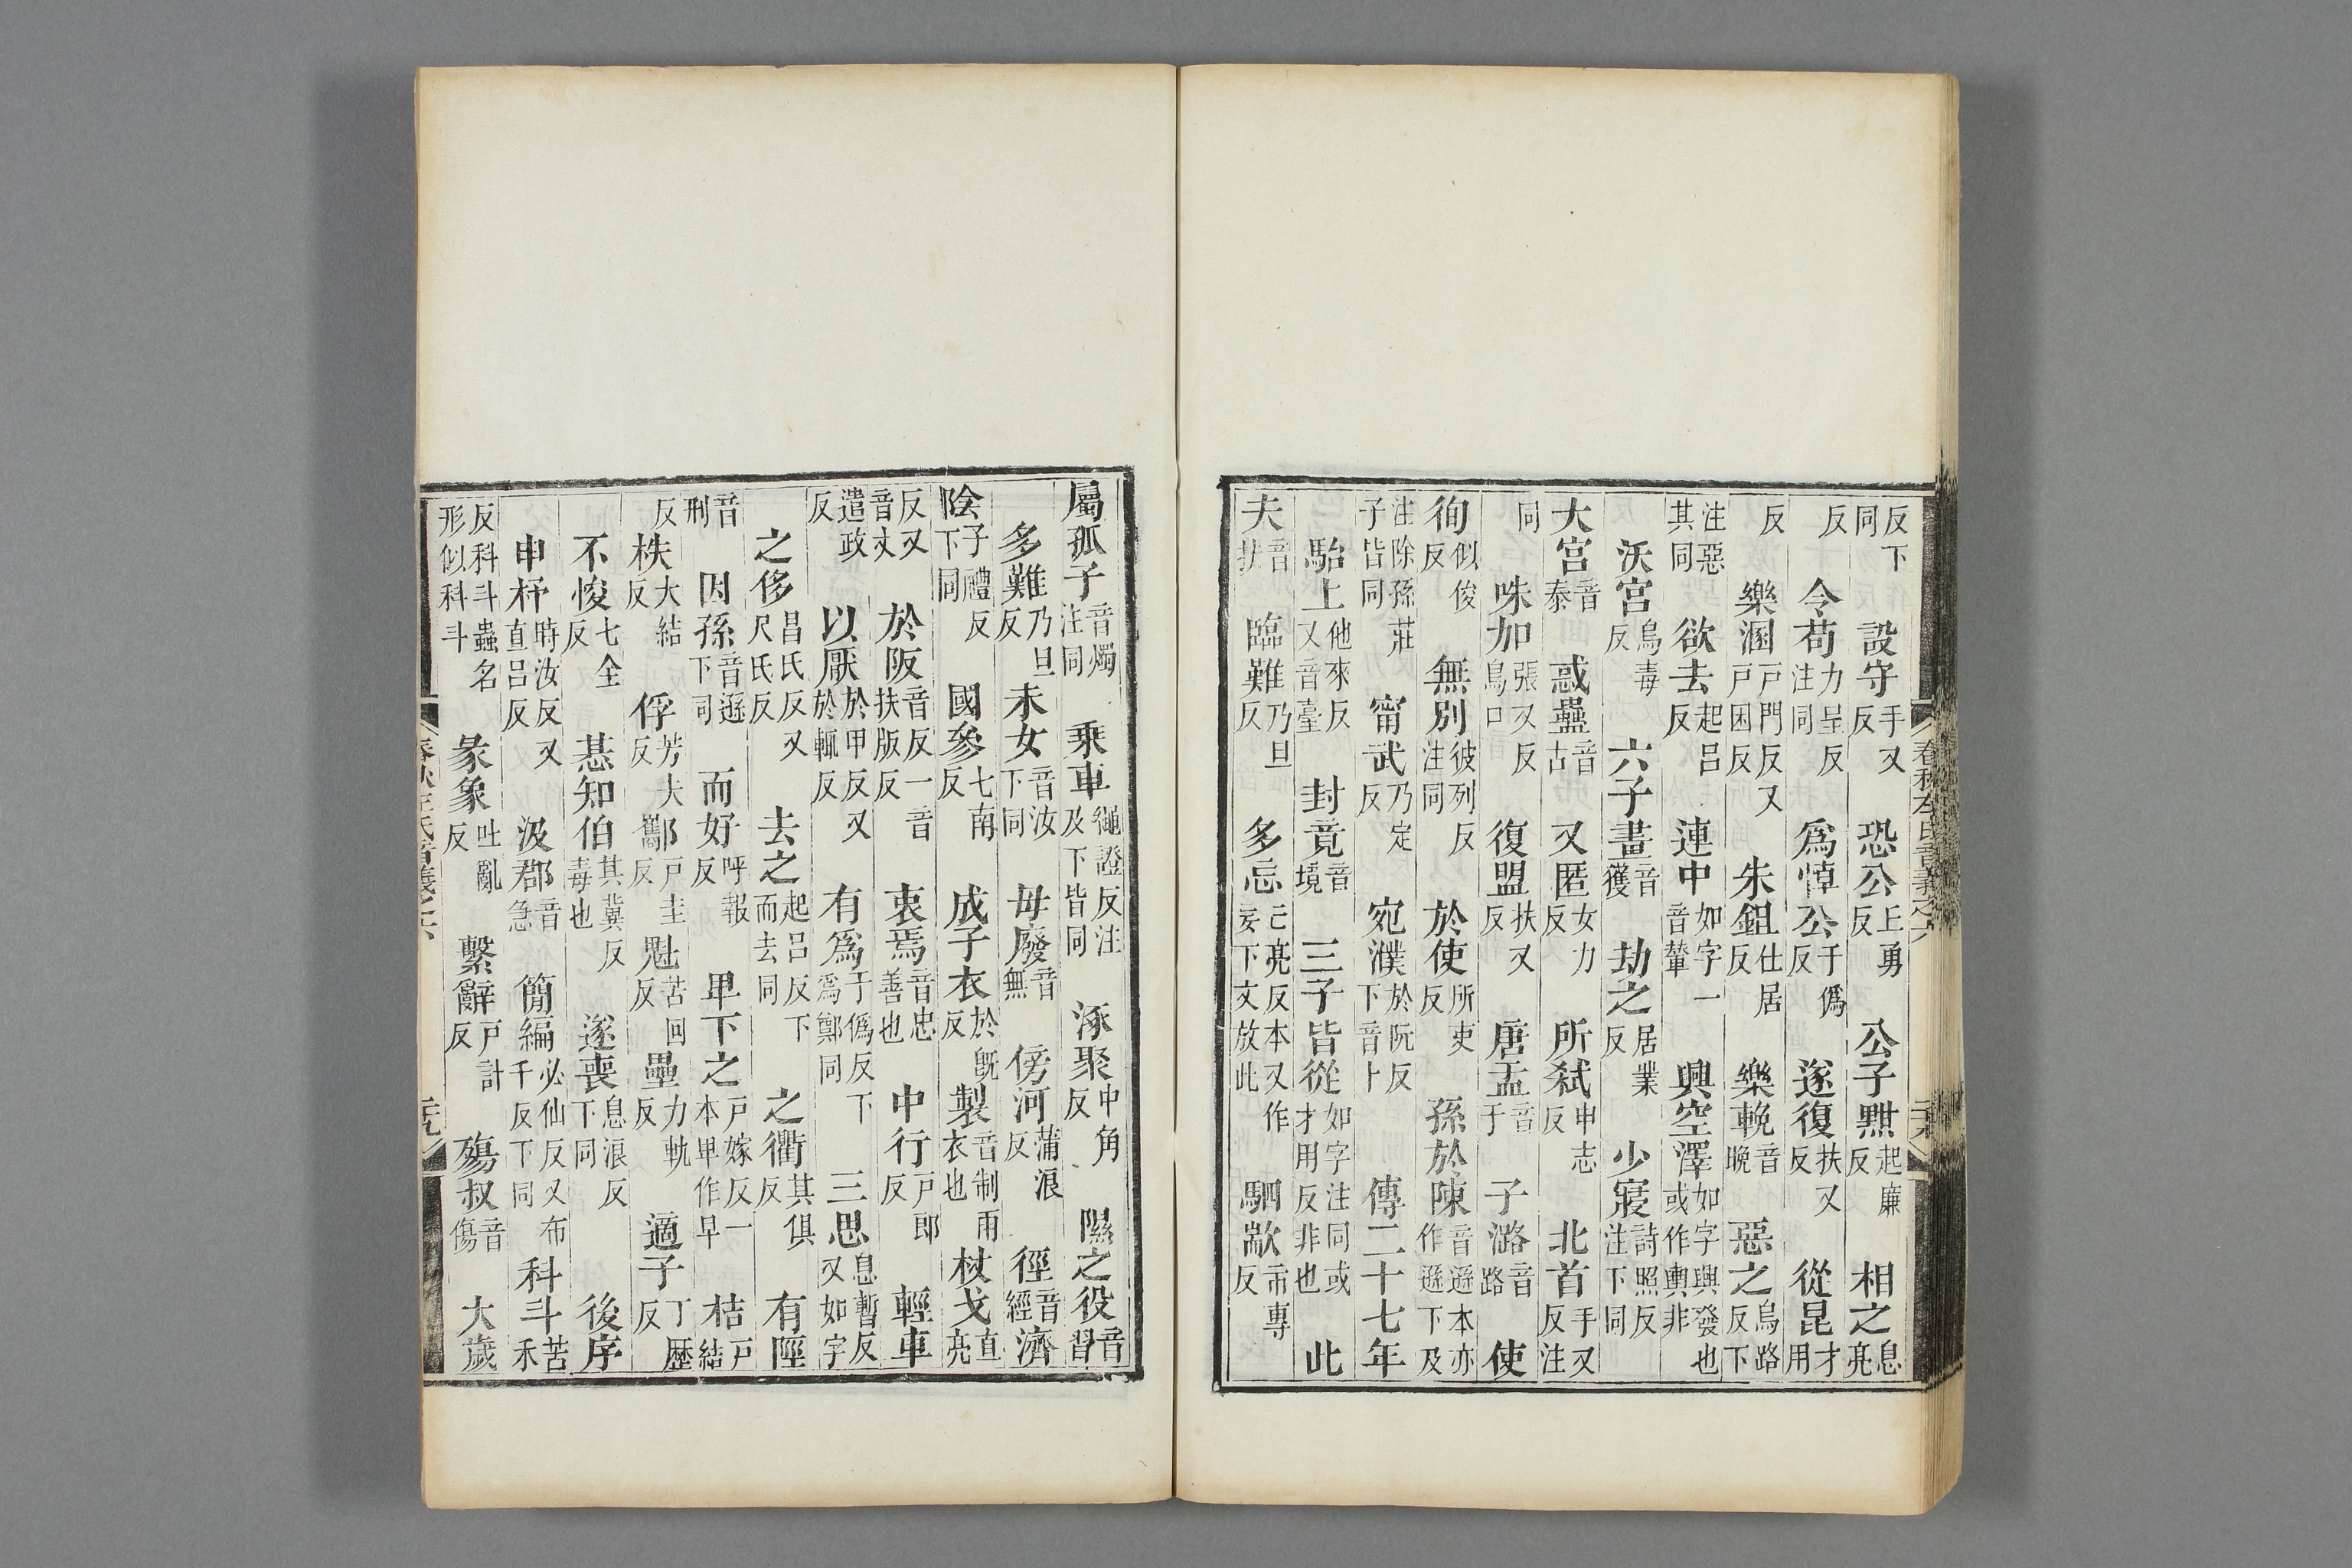 反下同設守手又反恐公丘勇反公子㸃起廉反相之息亮
反令苟力呈反注同爲悼公于僞反遂復扶又反從昆才用
反樂溷戶門反又戶困反朱鉏仕居反樂輓音晩惡之烏路反下
注惡其同欲去起呂反連中如字一音輦興空澤如字興發也或作輿非
沃宮烏毒反六子畫音獲劫之居業反少寢詩照反注下同
大宮音泰惑蠱音古又匿女力反所弑申志反北首手又反注
同咮加張又反烏口復盟扶又反唐盂音于子潞音路使
徇似俊反無別彼列反注同於使所吏反孫於陳音遜本亦作遜下及
注除孫莊子皆同甯武乃定反宛濮於阮反下音卜傳二十七年
駘上他來反又音臺封竟音境三子皆從如字注同或才用反非也此
夫音扶臨難乃旦反多忘亡亮反本又作妄下文放此駟歂市專反
春秋左氏音義之六
屬孤子音燭注同乗車繩證反注及下皆同涿聚中角反隰之役音習
多難乃旦反未女音汝下同毋廢音無傍河蒲浪反徑音經濟
陰子禮反下同國參七南反成子衣於旣反製音制雨衣也杖戈直亮
反又音丈於阪音反一音扶版反衷焉音忠善也中行戶郎反輕車
遣政反以厭於甲反又於輒反有爲于僞反下爲鄭同三思息暫反又如字
之侈昌氏反又尺氏反去之起呂反下而去同之衢其俱反有陘
音刑因孫音遜下同而好呼報反卑下之戶嫁反一本卑作早桔戶結
反柣大結反俘芳夫反酅戶圭反魁苦回反壘力軌反適子丁歷反
不悛七全反惎知伯其冀反毒也遂喪息浪反下同後序
申杼時汝反又直呂反汲郡音急簡編必仙反又布千反下同科斗苦禾
反科斗蟲名形似科斗彖象吐亂反繫辭戶計反殤叔音傷大歲
春秋左氏音義之六